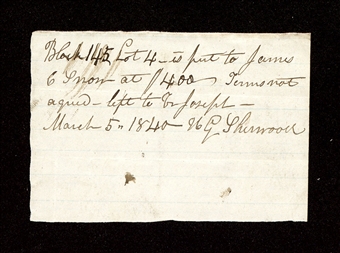 Block 145 Lot 4 - is put to James
C Snow - at $400 Terms not
agreed - left to Br Joseph -
March 5" 1840 - H G Sherwood